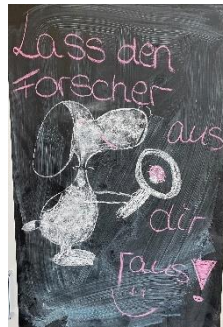 Lass den
Forscher
aus
dir
raus!